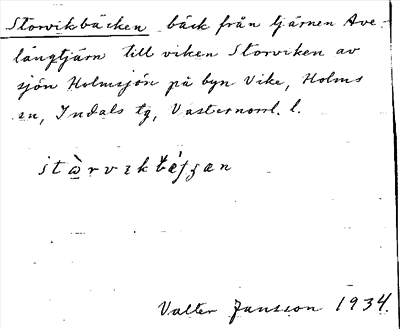 Storvikbäcken bäck från tjärnen Ave-
långtjärn till viken Storviken av
sjön Holmsjön på byn Vike, Holms
sn, Indals tg, Västernorrl. l.
stòrvikbæ̀ʃʃæn
Valter Jansson 1934.